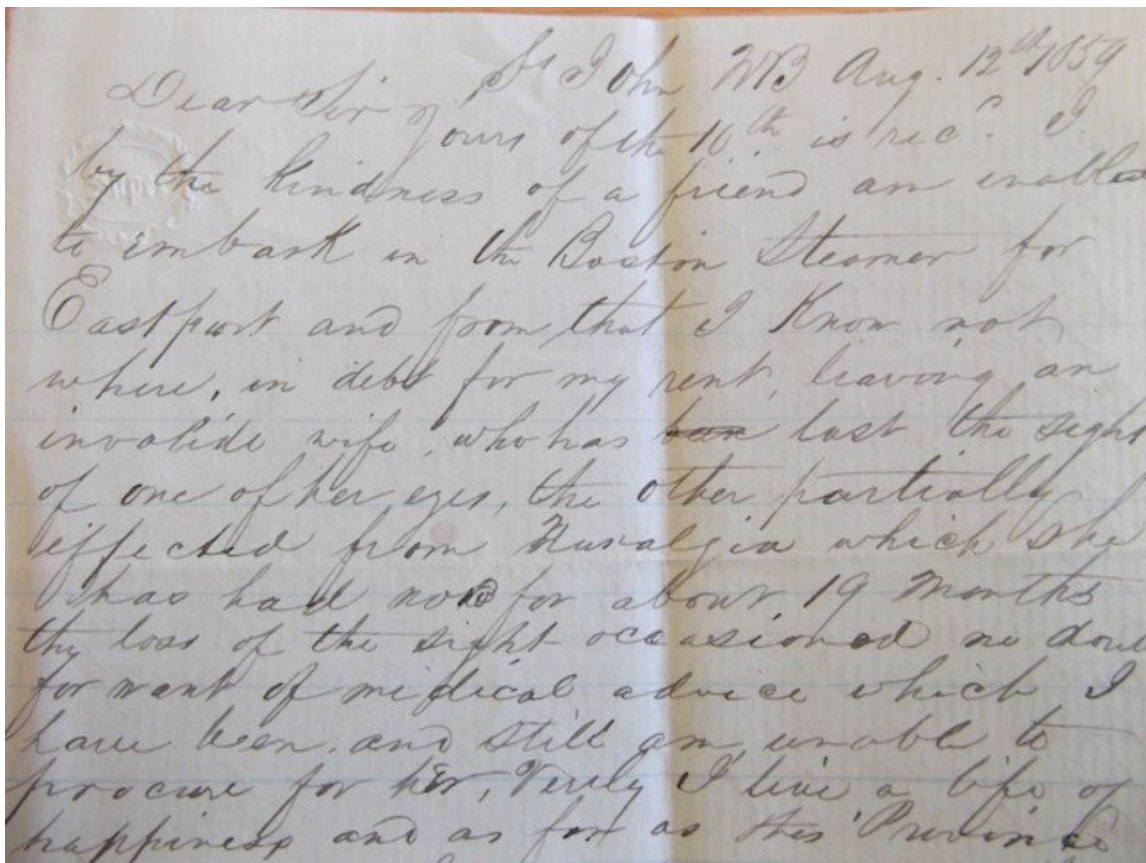 St John NB Aug. 12th 1859
Dear Sir
yours of the 10th is recd. I
by the kindness of a friend am enabled
to embark in the Boston Steamer for
Eastport and from that I Know not
where, in debt for my rent, leaving an
invalide wife, who has lost the sight
of one of her eyes, the other partially
effected from Nuralgia which she
has had now for about 19 Months
the loss of the sight occasioned no
for want of medical advice which I
have been, and still am, unable to
procure for her, Verily I live a life of
happiness and as far as this Province
Super